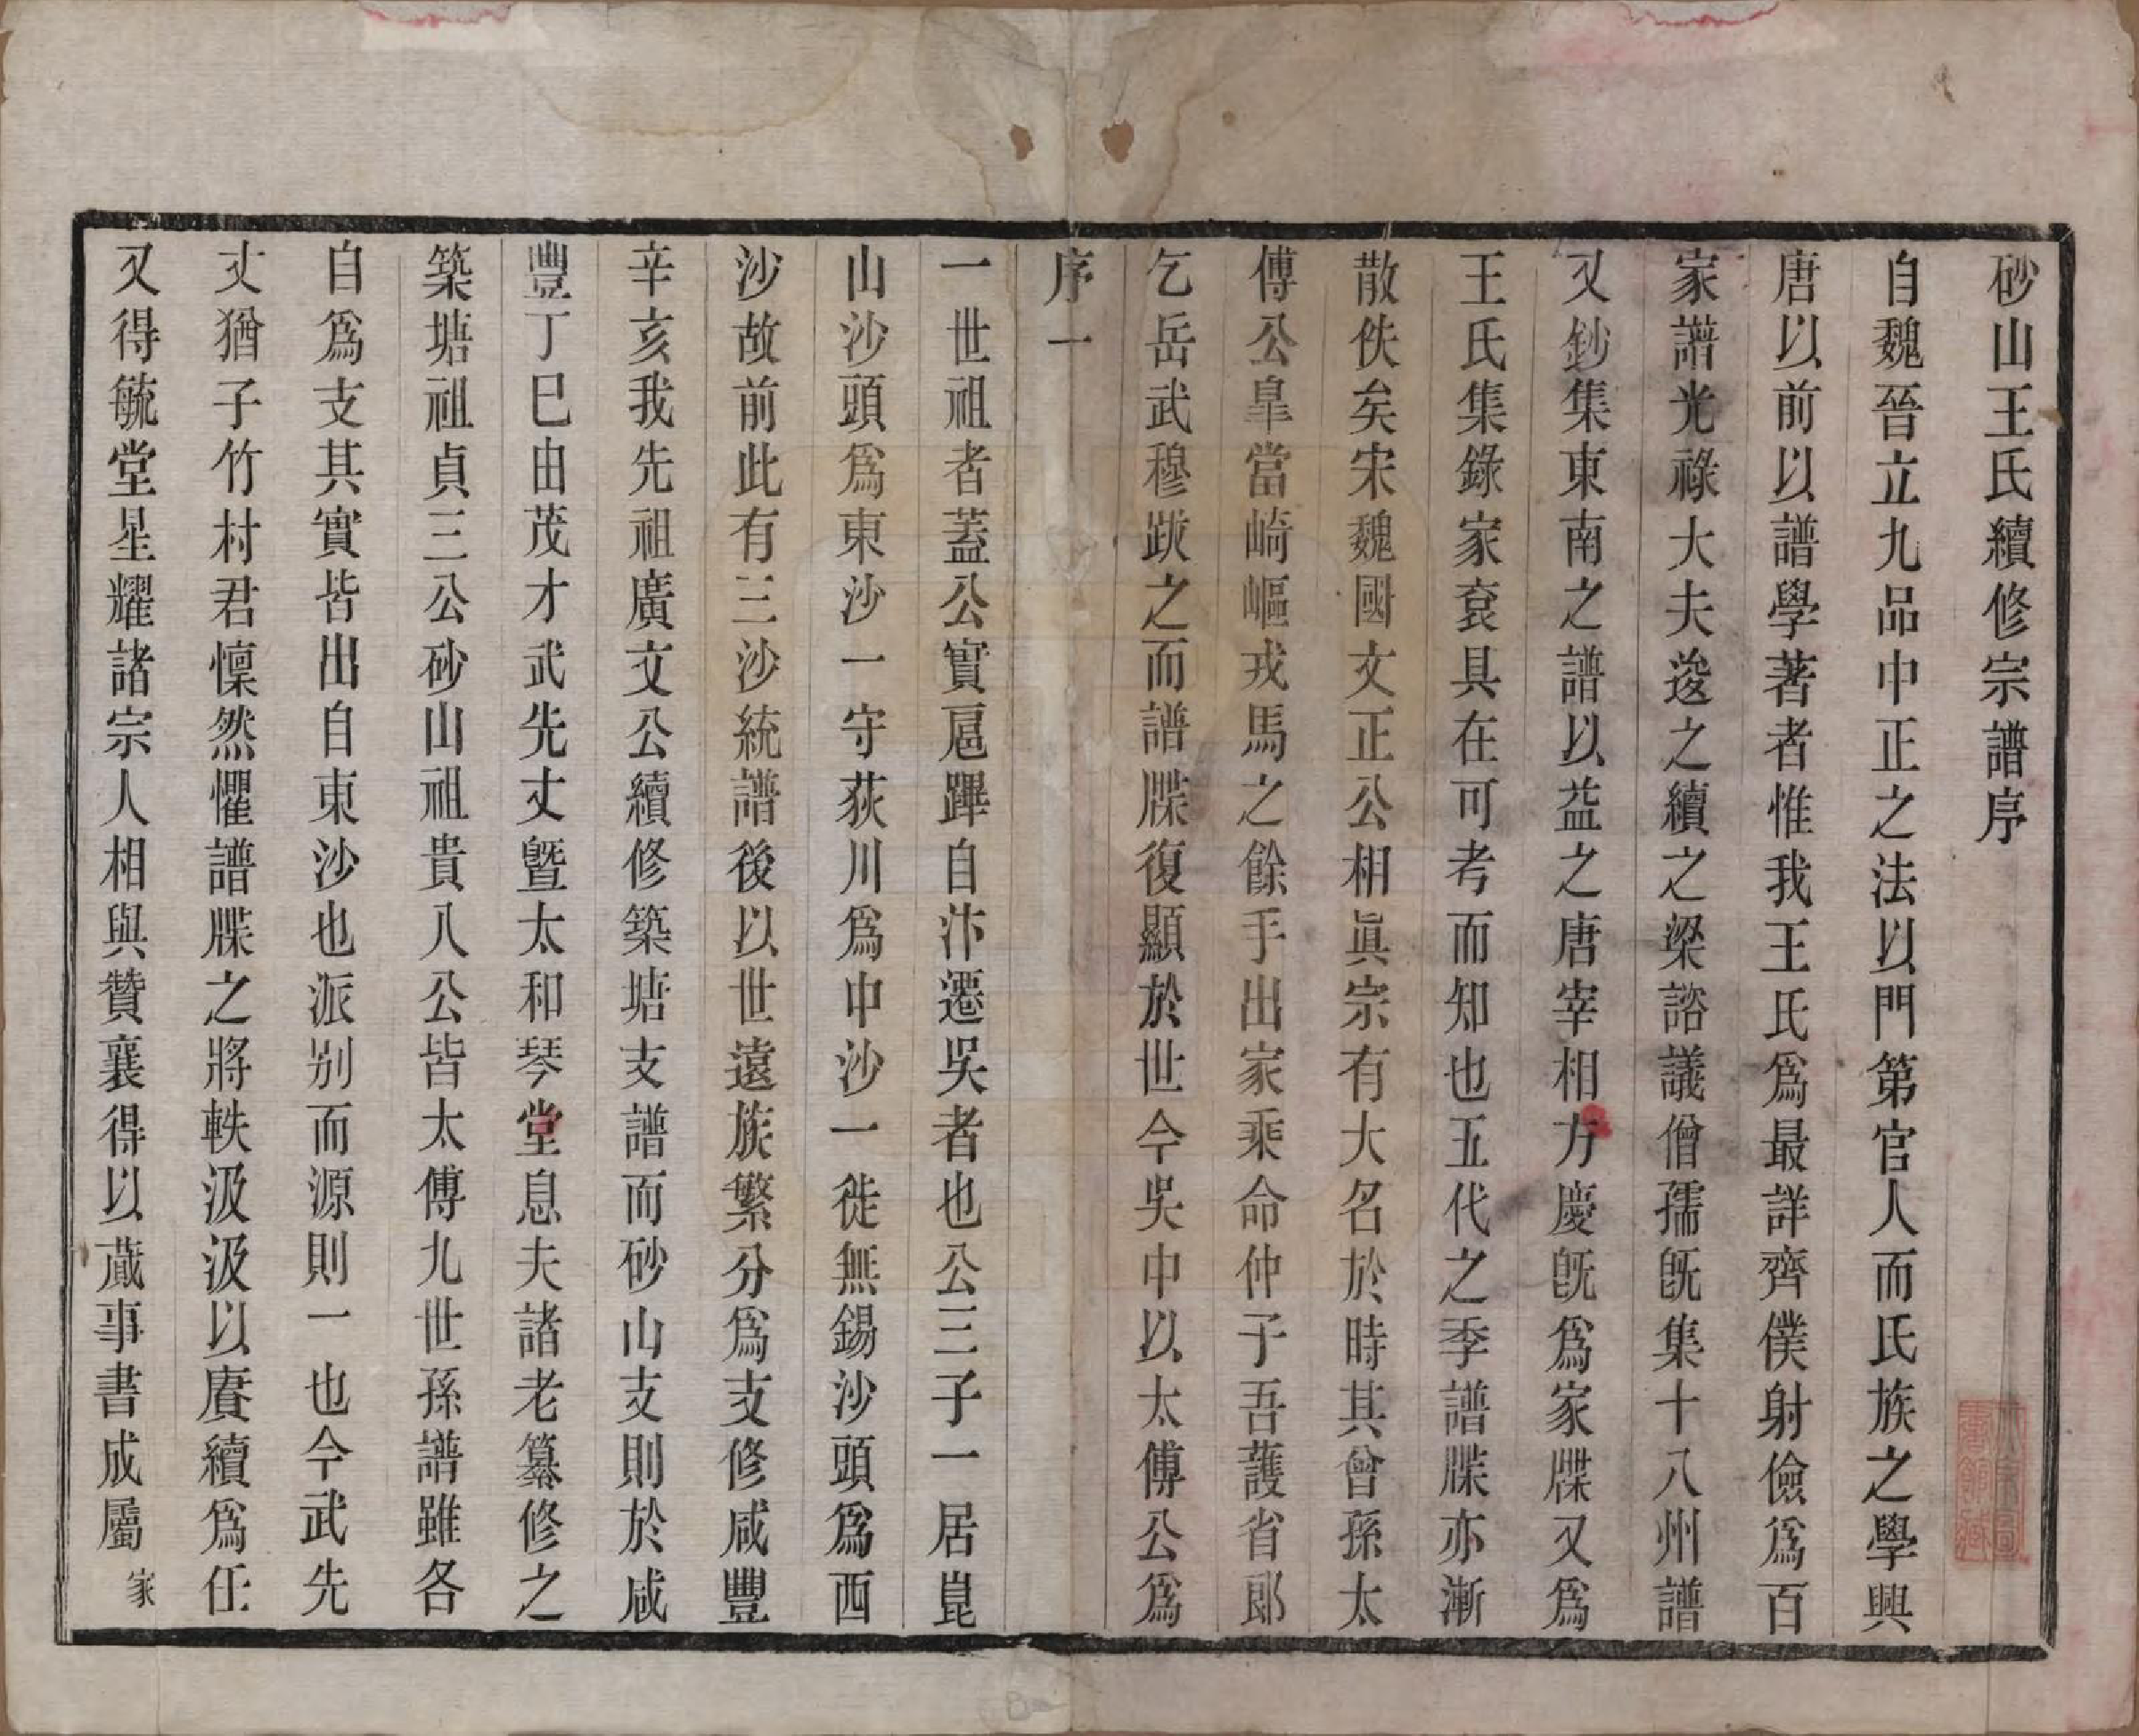 砂山王氏續修宗譜序
自魏晉立九品中正之法以門第官人而氏族之學興
唐以前以譜學著者惟我王氏爲最詳齊僕射儉爲百
家譜光祿大夫逡之續之梁諮議僧孺旣集十八州譜
又鈔集東南之譜以益之唐宰相方慶旣爲家牒又爲
王氏集錄家袞具在可考而知也五代之季譜牒亦漸
散佚矣宋魏國文正公相眞宗有大名於時其曾孫太
傅公皐當崎嶇戎馬之餘手出家乘命仲子吾護省郞
乞岳武穆跋之而譜牒復顯於世今吳中以太傅公爲
序一
一世祖者蓋公實扈蹕自汴遷吳者也公三子一居崑
山沙頭爲東沙一守荻川爲中沙一徙無錫沙頭爲西
沙故前此有三沙統譜後以世遠族繁分爲支修咸豐
辛亥我先祖廣文公續修築塘支譜而砂山支則於咸
豐丁巳由茂才武先丈暨太和琴堂息夫諸老纂修之
築塘祖貞三公砂山祖貴八公皆太傅九世孫譜雖各
自爲支其實皆出自東沙也派别而源則一也今武先
丈猶子竹村君懍然懼譜牒之將軼汲汲以賡續爲任
又得毓堂星耀諸宗人相與贊襄得以蕆事書成屬家